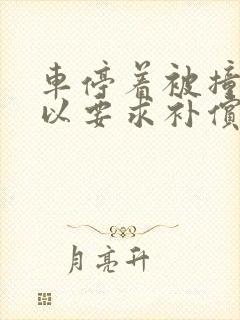 車停着被撞
以要求补償
月亮升